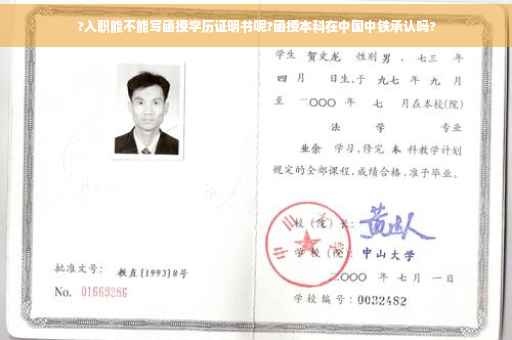 ?入职能不能写函授学历证明书呢?函授本科在中国中铁承认吗?
学生 贺文龙 性别 男 ,七三 年
四 月 日生,于 九七 年 九 月
至 二〇〇〇 年 七 月在本校(院)
法 学 专业
业余 学习,修完 本 科教学计划
规定的全部课程,成绩合格,准予毕业。
校(院)长:
学校(院): 中山大学
二〇〇〇 年 七 月 一 日
批准文号: 教直[1993]8号
No. 01669286
学校编号: 0032482